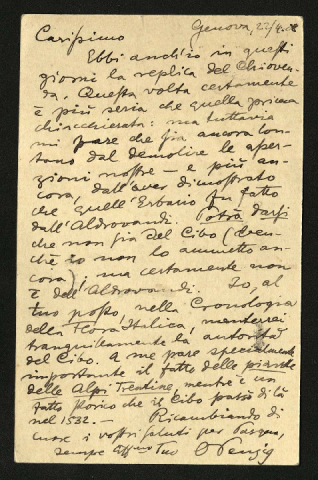 Genova, 22/4.08
Carissimo
Ebbi anch'io in questi
giorni la replica del Chioven-
da. Questa volta certamente
è più seria che quella prima
chiacchierata: ma tuttavia
mi pare che sia ancora lon-
tano dal demolire le asser-
zioni nostre – e più an-
cora, dall'aver dimostrato
che quell'Erbario fu fatto
dall'Aldrovandi. Potrà darsi
che non sia del Cibo (ben-
chè io non lo ammetto an-
cora); ma certamente non
è dell'Aldrovandi. Io, al
tuo posto, nella Cronologia
della Flora Italica, manterrei
tranquillamente la autorità
del Cibo. A me pare specialmente
importante il fatto delle piante
delle Alpi Trentine, mentre è un
fatto storico che il Cibo passò di là
nel 1532. – Ricambiando di
cuore i vostri saluti per Pasqua,
sempre affmo Tuo O Penzig